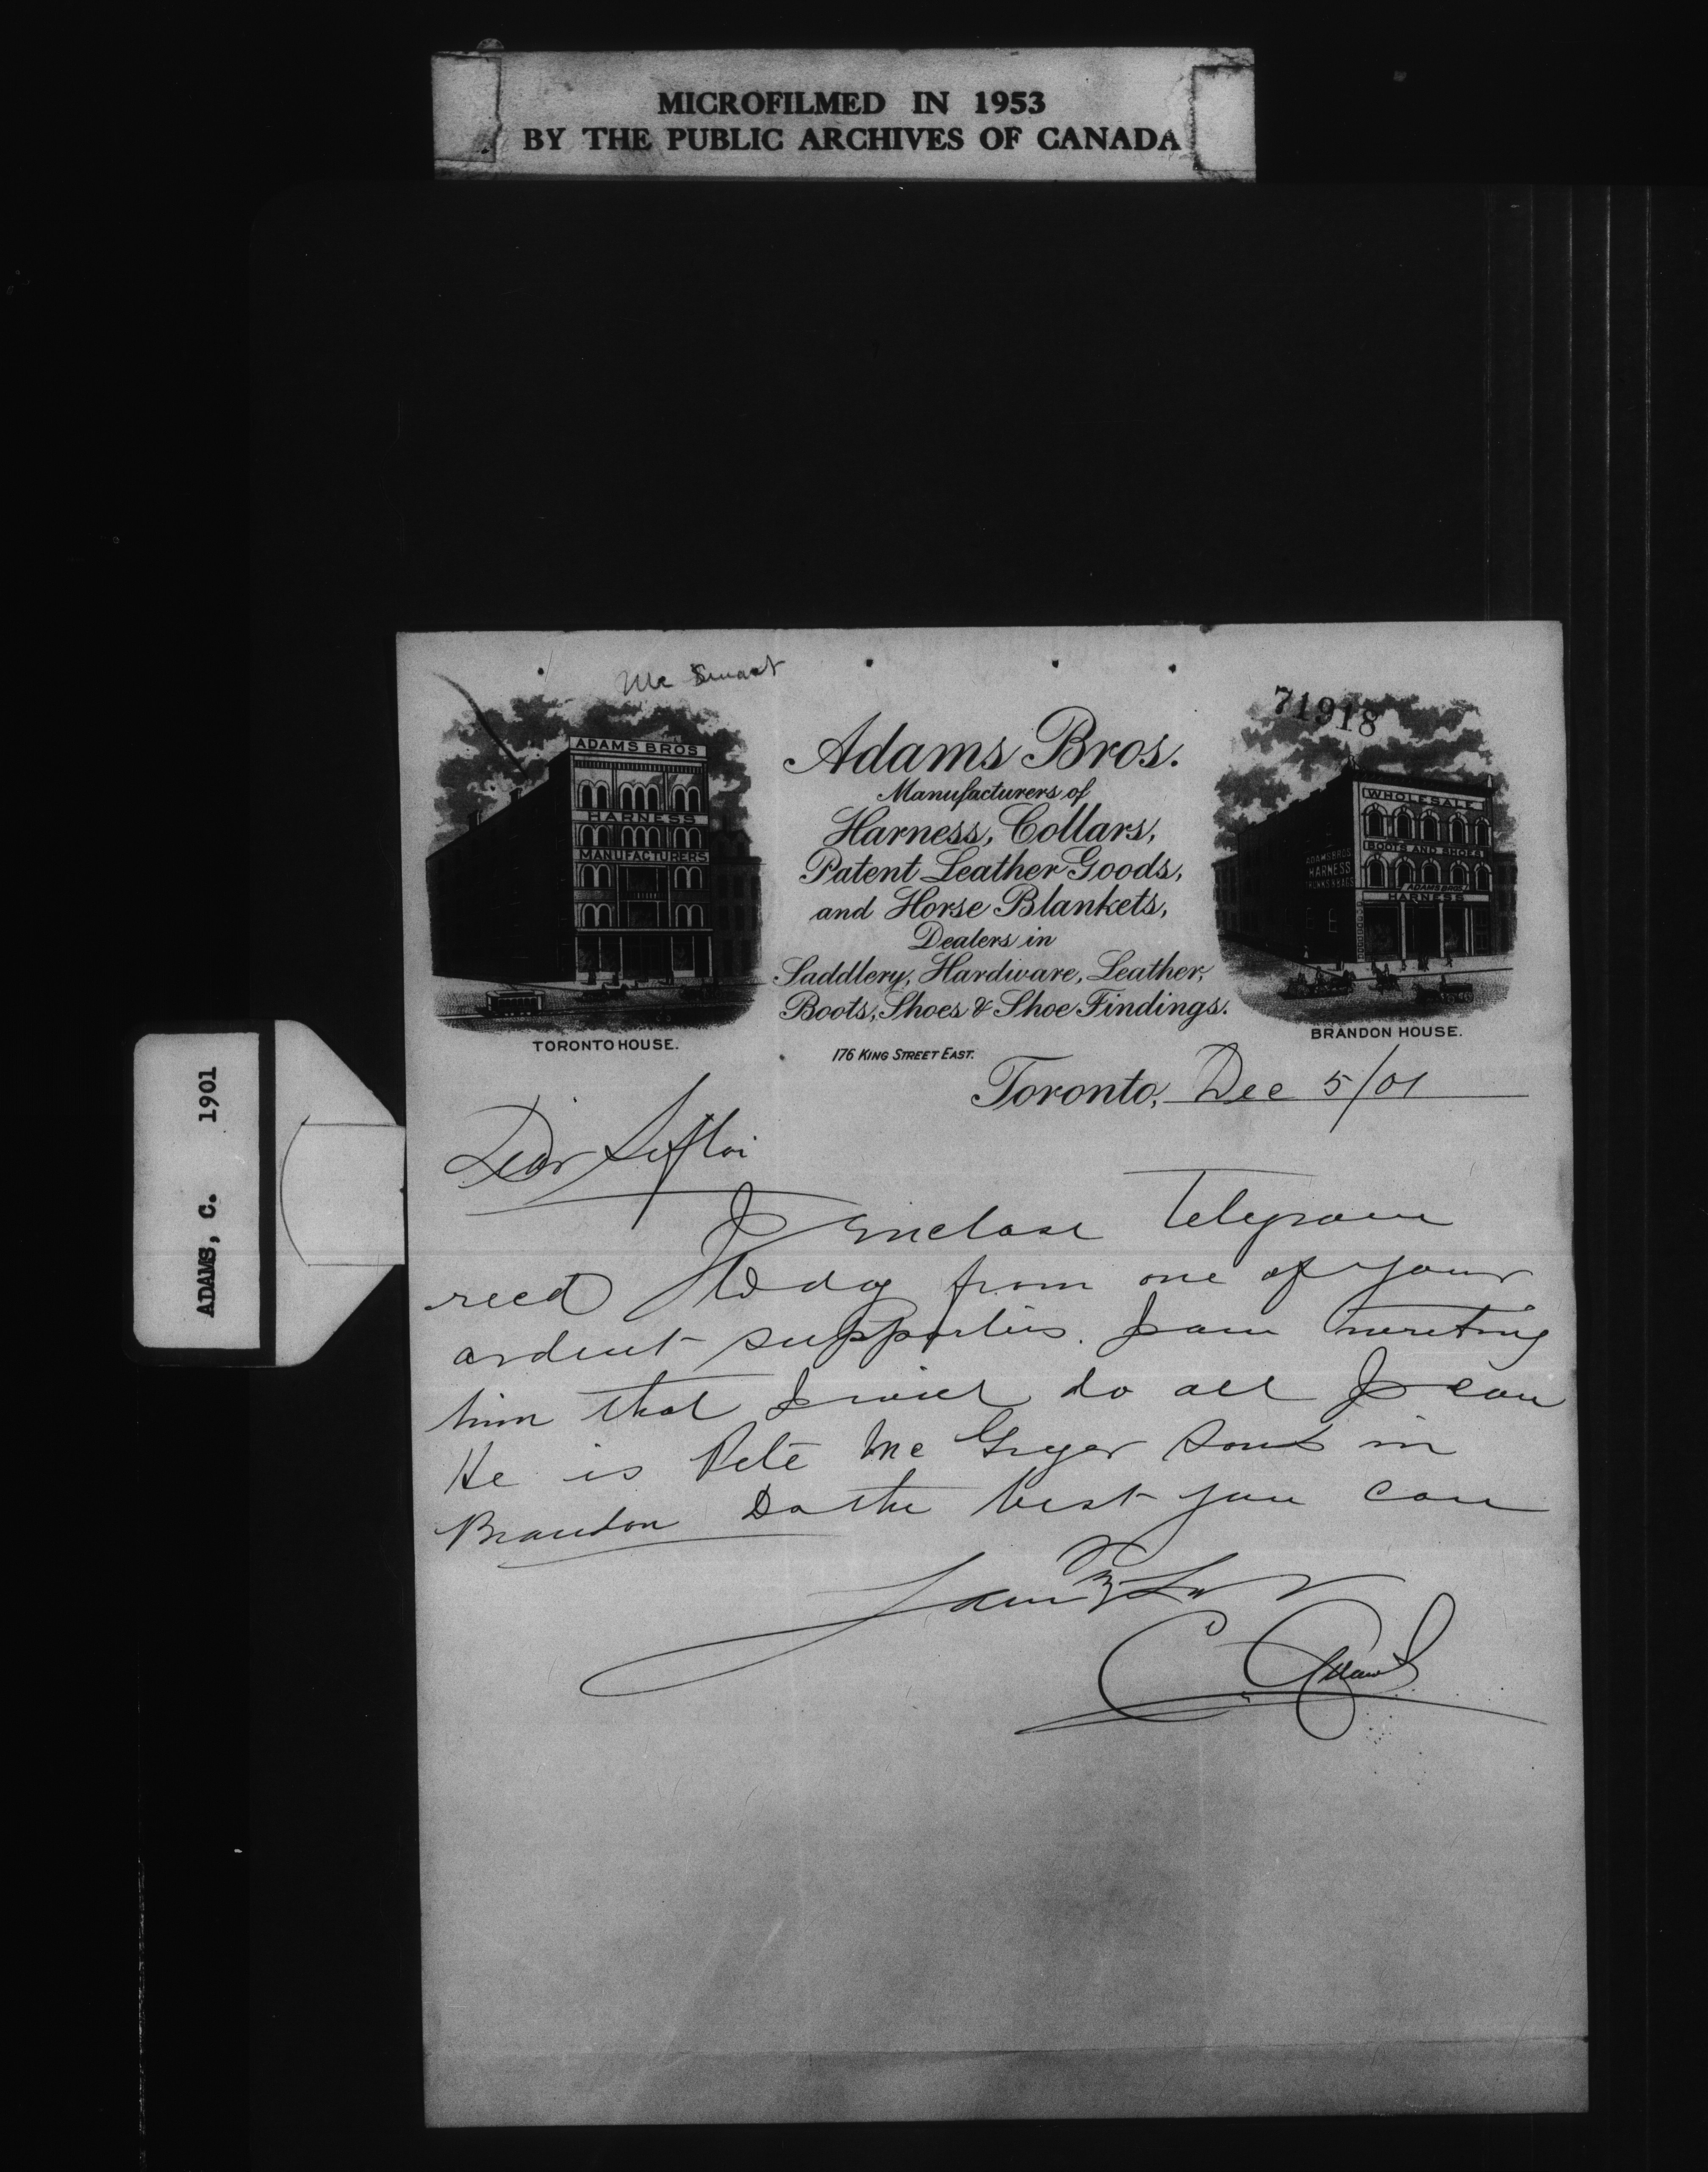 MICROFILMED IN 1953
BY THE PUBLIC ARCHIVES OF CANADA
ADAMS, C. 1901
71918
ADAMS BROS
HARNESS
MANUFACTURERS
TORONTO HOUSE.
Adams Bros.
Manufacturers of
Harness, Collars,
Patent Leather Goods,
and Horse Blankets,
Dealers in
Saddlery, Hardware, Leather,
Boots, Shoes & Shoe Findings.
176 KING STREET EAST.
WHOLESALE
BOOTS AND SHOES
ADAMS BROS
HARNESS
ADAMS BROS
HARNESS
TRUNKS & BAGS
BRANDON HOUSE.
Toronto, Dec 5/01
Dear Sifton
I Enclose Telegram
recd to day from one of your
ardent supporters. I am
him that I will do all I can
He is Pete Mc Gregor Sons in
Brandon Do the best you can
C. Adams